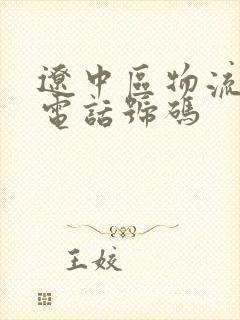 遼中區物流
電話號碼
王姣